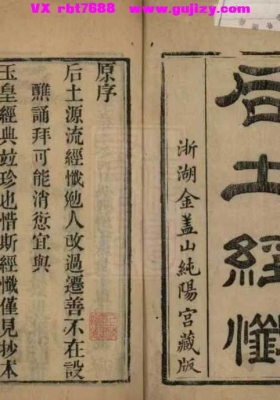 VX rbt7688 www.gujizy.com
后土經懺
浙湖金蓋山純陽宮藏版
原序
后土源流經懺勉人改過遷善不在設
醮誦拜可能消愆宜與
玉皇經典竝珍也惜斯經懺僅見抄本